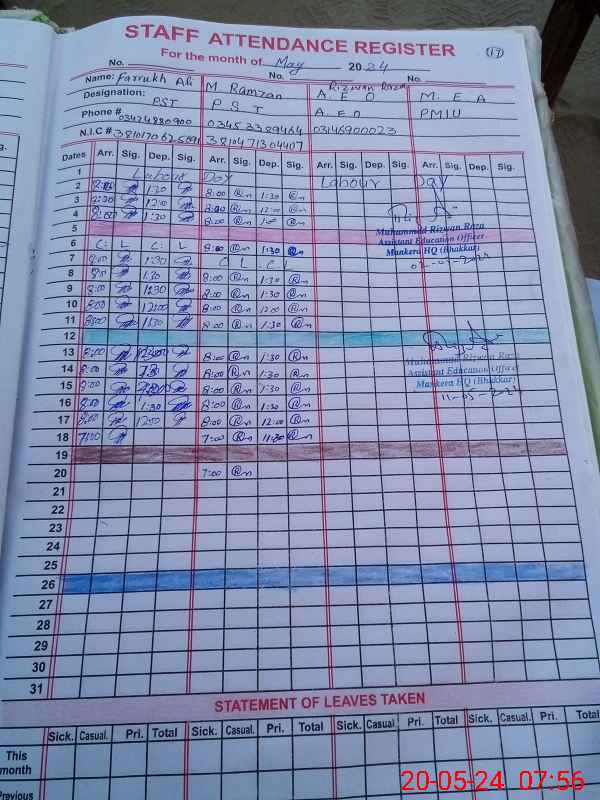 STAFF ATTENDANCE REGISTER
(17)
For the month of May 2024
No. No. No.
Name: Farrukh Ali M Ramzan Rizwan Raza
Designation: PST P S T A. E O M. E. A
Phone # 03424880900 03453389464 A E O PMIU
N.I.C # 3810471304407 03146900023
Dates Arr. Sig. Dep. Sig. Arr. Sig. Dep. Sig. Arr. Sig. Dep. Sig. Arr. Sig. Dep. Sig.
1 Labour Day Labour Day
2 8:00 1:30 8:00 Rn 1:30 Rn
3 8:00 12:00 8:00 Rn 12:00 Rn
4 8:00 1:30 8:00 Rn Rn
Muhammad Rizwan Raza
Assistant Education Officer
Mankera HQ (Bhakkar)
5
6 C: L C: L 8:00 Rn 1:30 Rn
7 8:00 1:30 C L . C L
8 8:00 1:30 8:00 Rn 1:30 Rn
9 8:00 8:00 Rn 1:30 Rn
10 8:00 12:00 8:00 Rn 12:00 Rn
11 8:00 1:30 8:00 Rn 1:30 Rn
12
13 8:00 8:00 Rn 1:30 Rn
Muhammad Rizwan Raza
Assistant Education Officer
Mankera HQ (Bhakkar)
14 8:00 8:00 Rn 1:30 Rn
15 8:00 8:00 Rn 1:30 Rn
16 8:00 1:30 8:00 Rn 1:30 Rn
17 8:00 12:00 8:00 Rn 12:00 Rn
18 7:00 7:00 Rn 11:30 Rn
19
20 7:00 Rn
21
22
23
24
25
26
27
28
29
30
31
STATEMENT OF LEAVES TAKEN
Sick. Casual. Pri. Total Sick. Casual. Pri. Total Sick. Casual. Pri. Total Sick. Casual. Pri. Total
This
month
Previous
20-05-24 07:56